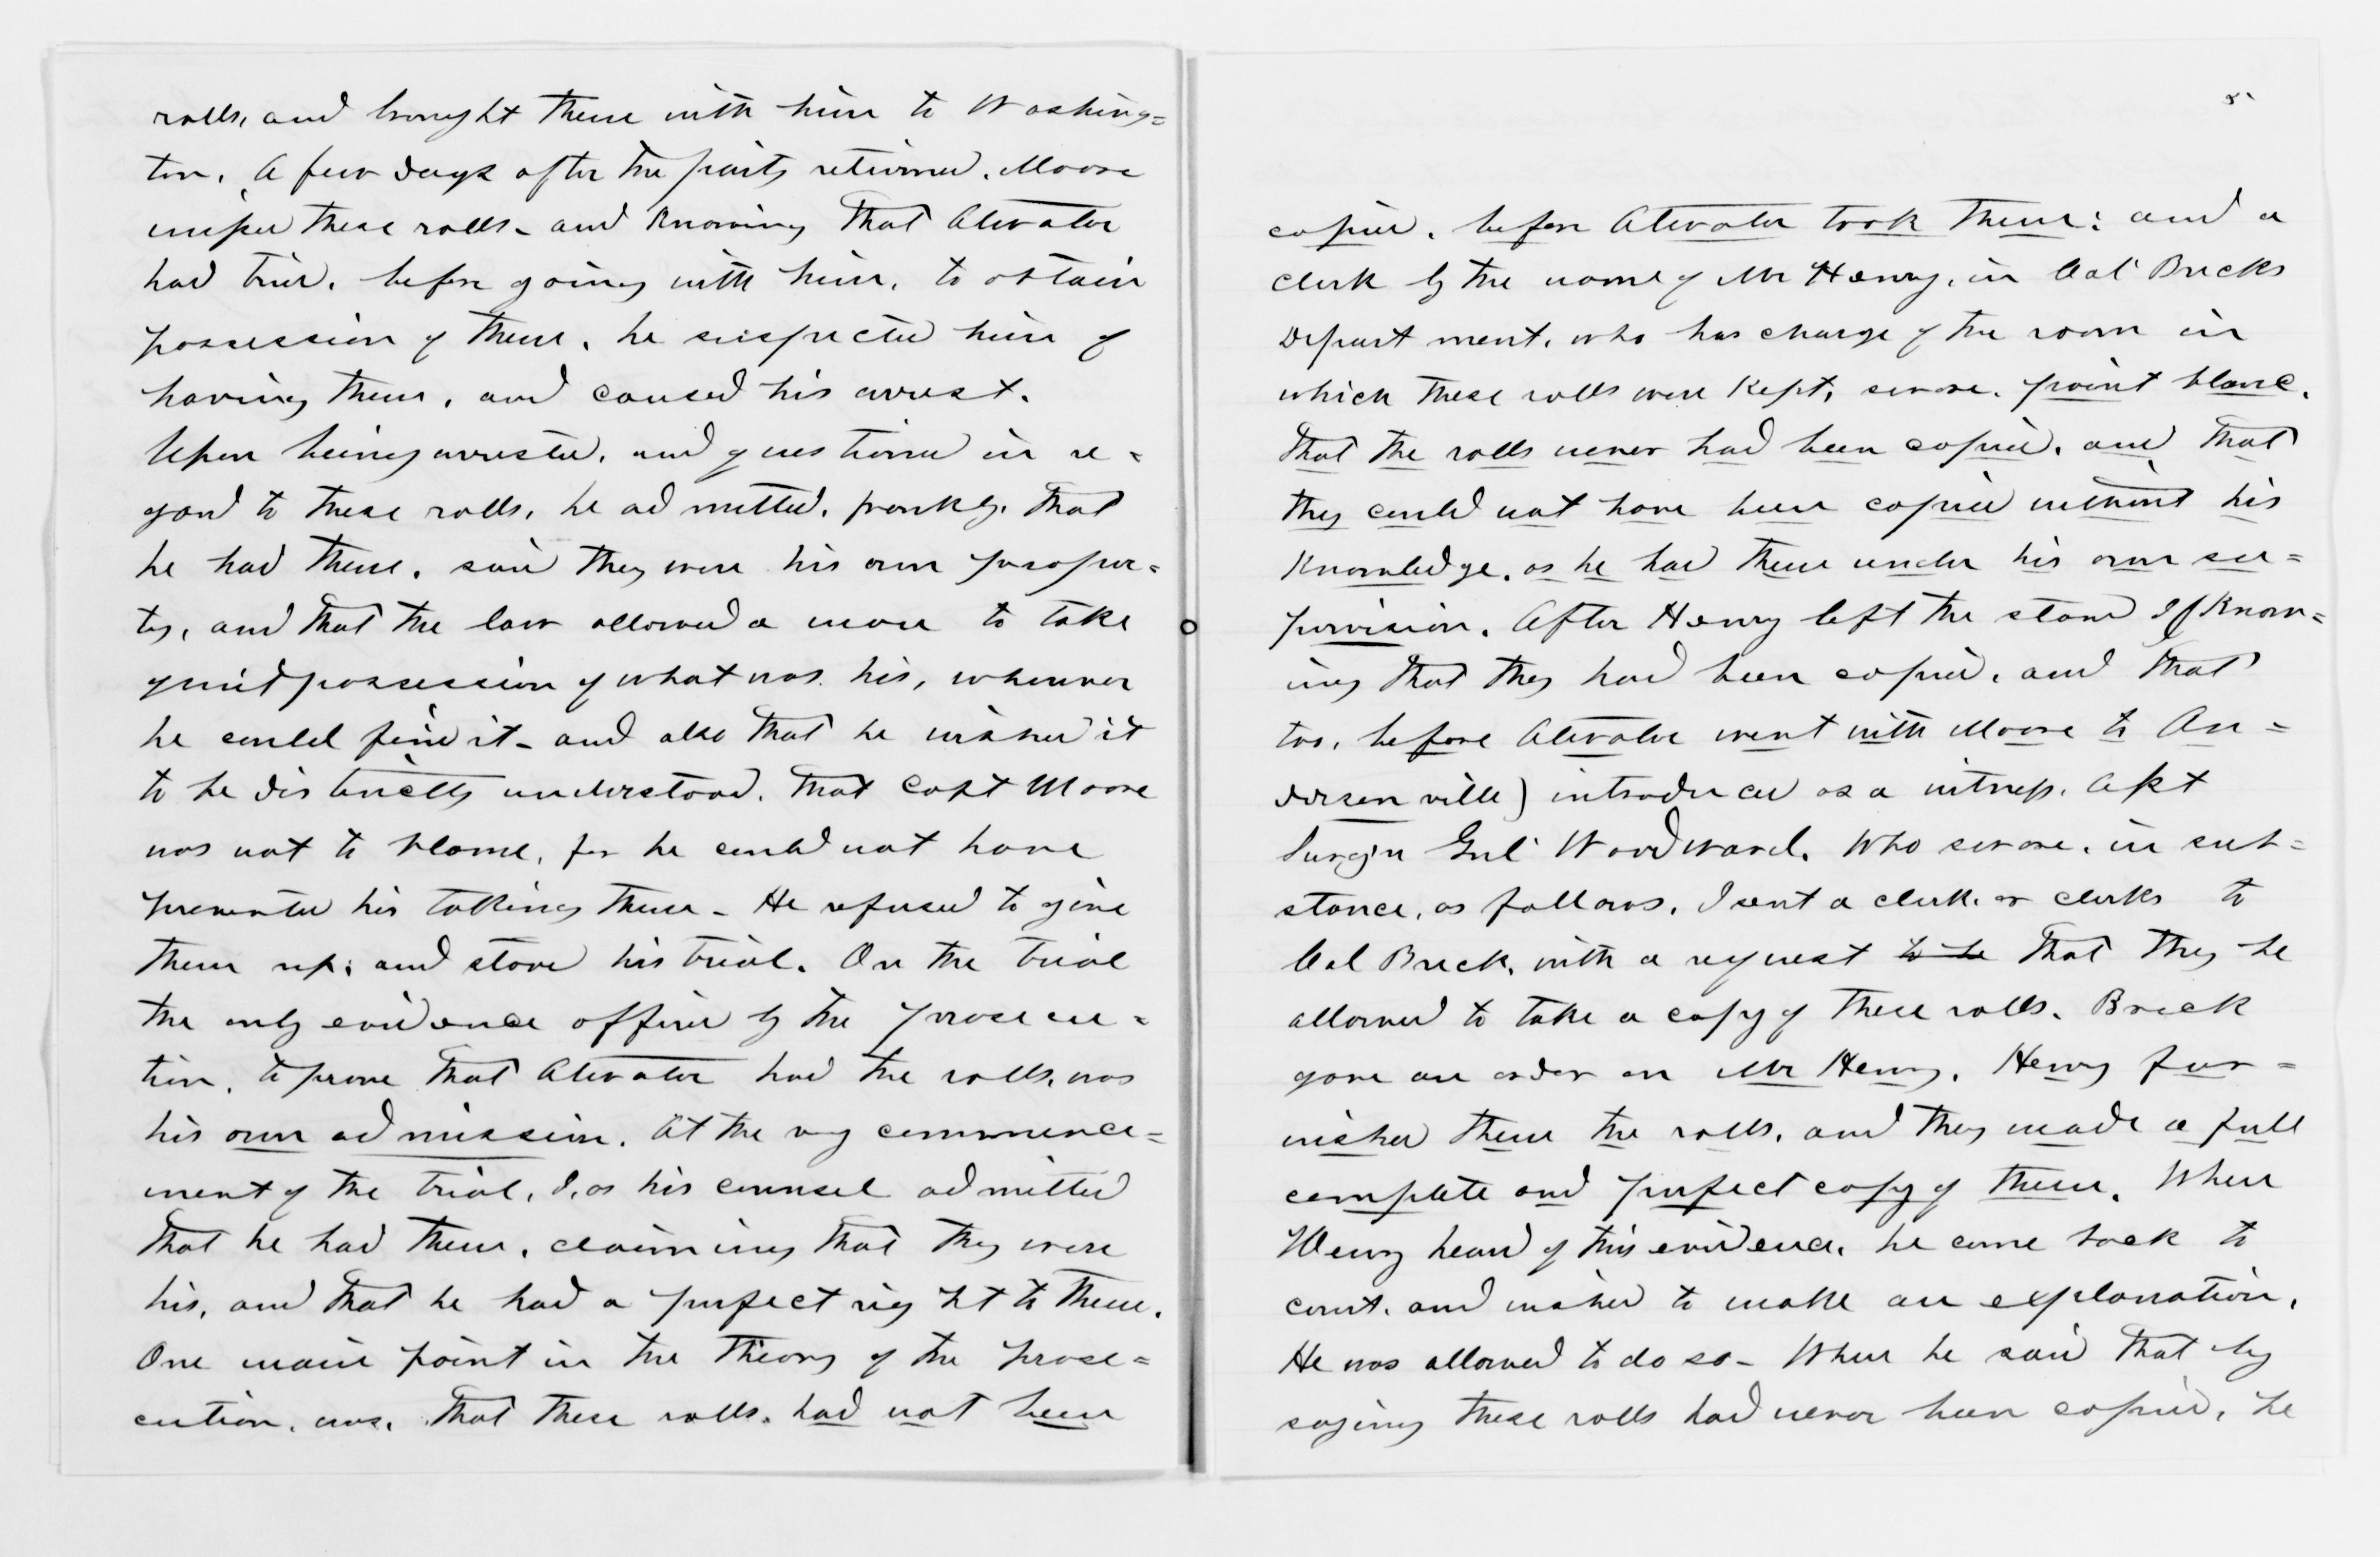 rolls, and brought them with him to Washing=
ton. A few days after the party returned. Moore
missed these rolls - and knowing that Atwater
had tried. before going with him. to obtain
possession of them. he suspected him of
having them, and caused his arrest.
Upon being arrested. and questioned in re=
gard to these rolls. he admitted. frankly. that
he had them. said they were his own proper=
ty, and that the law allowed a man to take
quiet possession of what was his, wherever
he could find it - and also that he wished it
to be distinctly understood. that Capt Moore
was not to blame, for he could not have
prevented his taking them - He refused to give
them up; and stood his trial. On the trial
the only evidence offered by the prosecu=
tion. to prove that Atwater had the rolls. was
his own admission. At the very commence=
ment of the trial, I, as his counsel admitted
that he had them. claiming that they were
his, and that he had a perfect right to them.
One main point in the theory of the prose=
cution. was. that these rolls. had not been
5
copied. before Atwater took them: and a
clerk by the name of Mr Henry, in Col Brecks
Department. who has charge of the room in
which these rolls were kept, swore. point blanc.
that the rolls never had been copied. and that
they could not have been copied without his
knowledge. as he had them under his own su=
pervision. After Henry left the stand I (know=
ing that they had been copied. and that
too. before Atwater went with Moore to An=
dersonville) introduced as a witness. Asst
Surgn Genl Woodward. Who swore. in sub=
stance, as follows. I sent a clerk or clerks to
Col Breck. with a request to be that they be
allowed to take a copy of these rolls. Breck
gave an order on Mr Henry. Henry fur=
nished them the rolls. and they made a full
complete and perfect copy of them. When
Henry heard of this evidence. he came back to
court. and wished to make an explanation.
He was allowed to do so - When he said that by
saying these rolls had never been copied. he